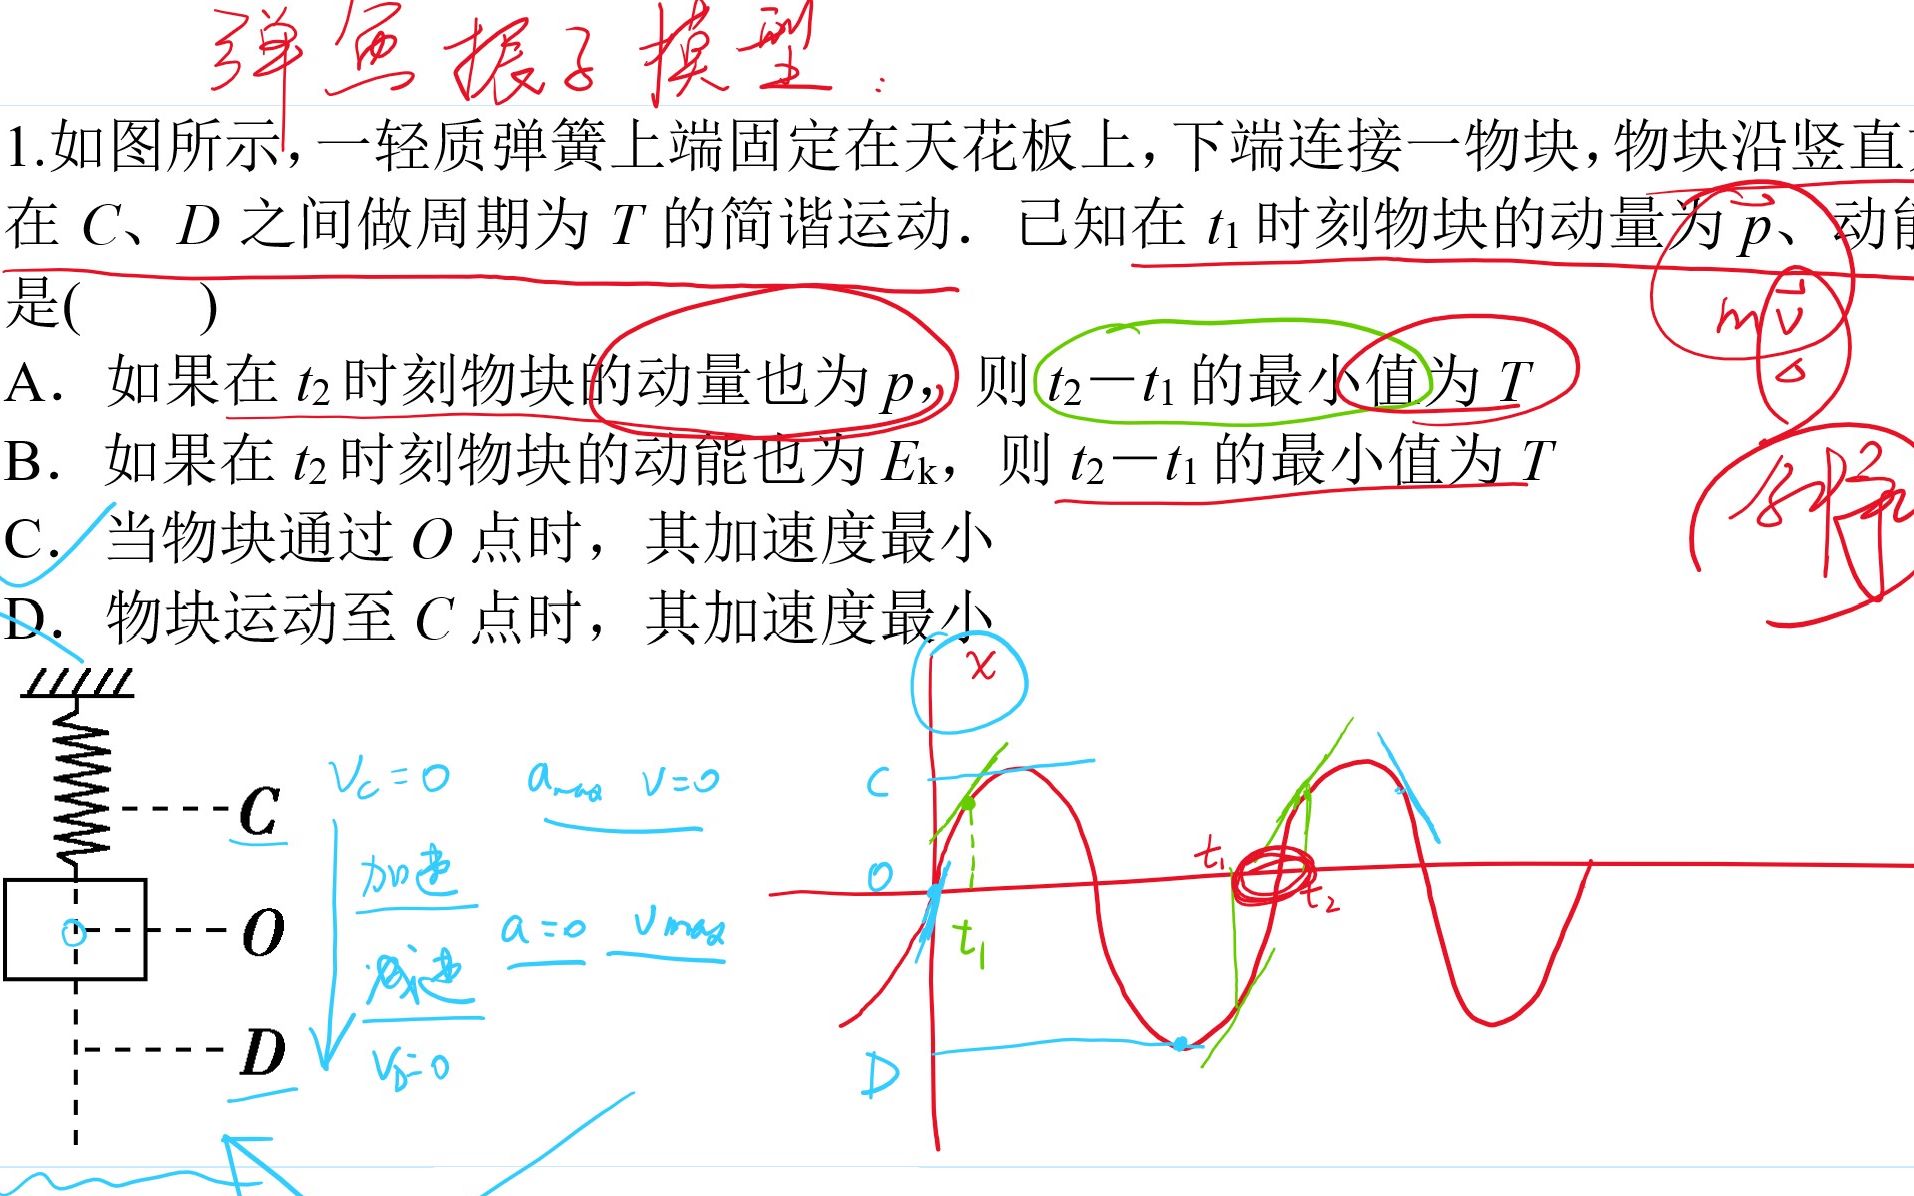 弹鱼振子模型：
1.如图所示，一轻质弹簧上端固定在天花板上，下端连接一物块，物块沿竖直
在 C、D 之间做周期为 T 的简谐运动．已知在 t₁ 时刻物块的动量为 p、动能
是(　　)
m v⃗
A．如果在 t₂ 时刻物块的动量也为 p，则 t₂－t₁ 的最小值为 T
B．如果在 t₂ 时刻物块的动能也为 Eₖ，则 t₂－t₁ 的最小值为 T
C．当物块通过 O 点时，其加速度最小
D．物块运动至 C 点时，其加速度最小
x
C
V_C=0 a_max v=0
C
加速
O
t₁
t₂
O
a=0 v max
t₁
减速
D
V_D=0
D